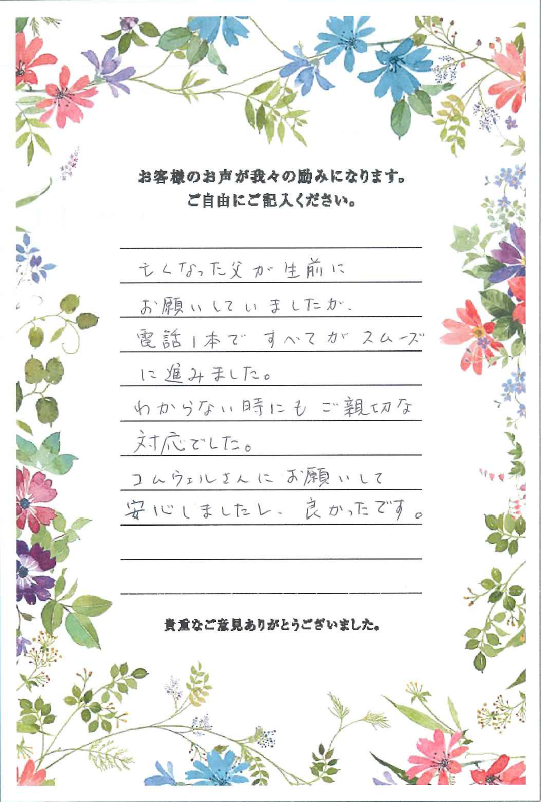 お客様のお声が我々の励みになります。
ご自由にご記入ください。
亡くなった父が生前に
お願いしていましたが、
電話1本ですべてがスムーズ
に進みました。
わからない時にもご親切な
対応でした。
コムウェルさんにお願いして
安心しましたし、良かったです。
貴重なご意見ありがとうございました。